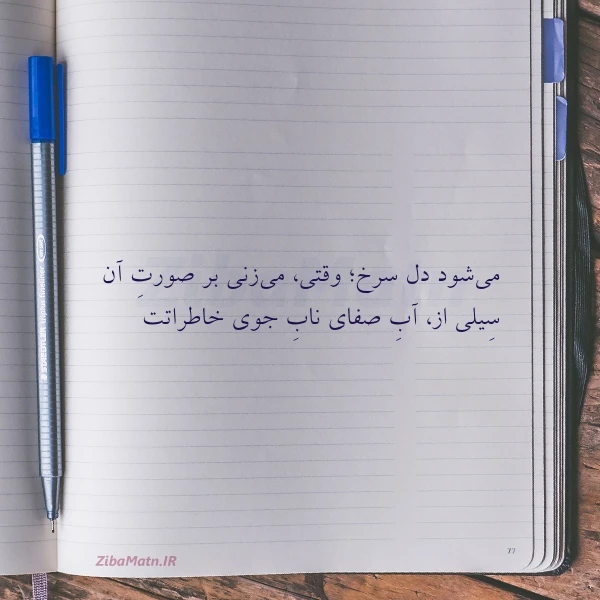 می‌شود دل سرخ؛ وقتی، می‌زنی بر صورتِ آن
سِیلی از، آبِ صفای نابِ جوی خاطراتت
77
ZibaMatn.IR